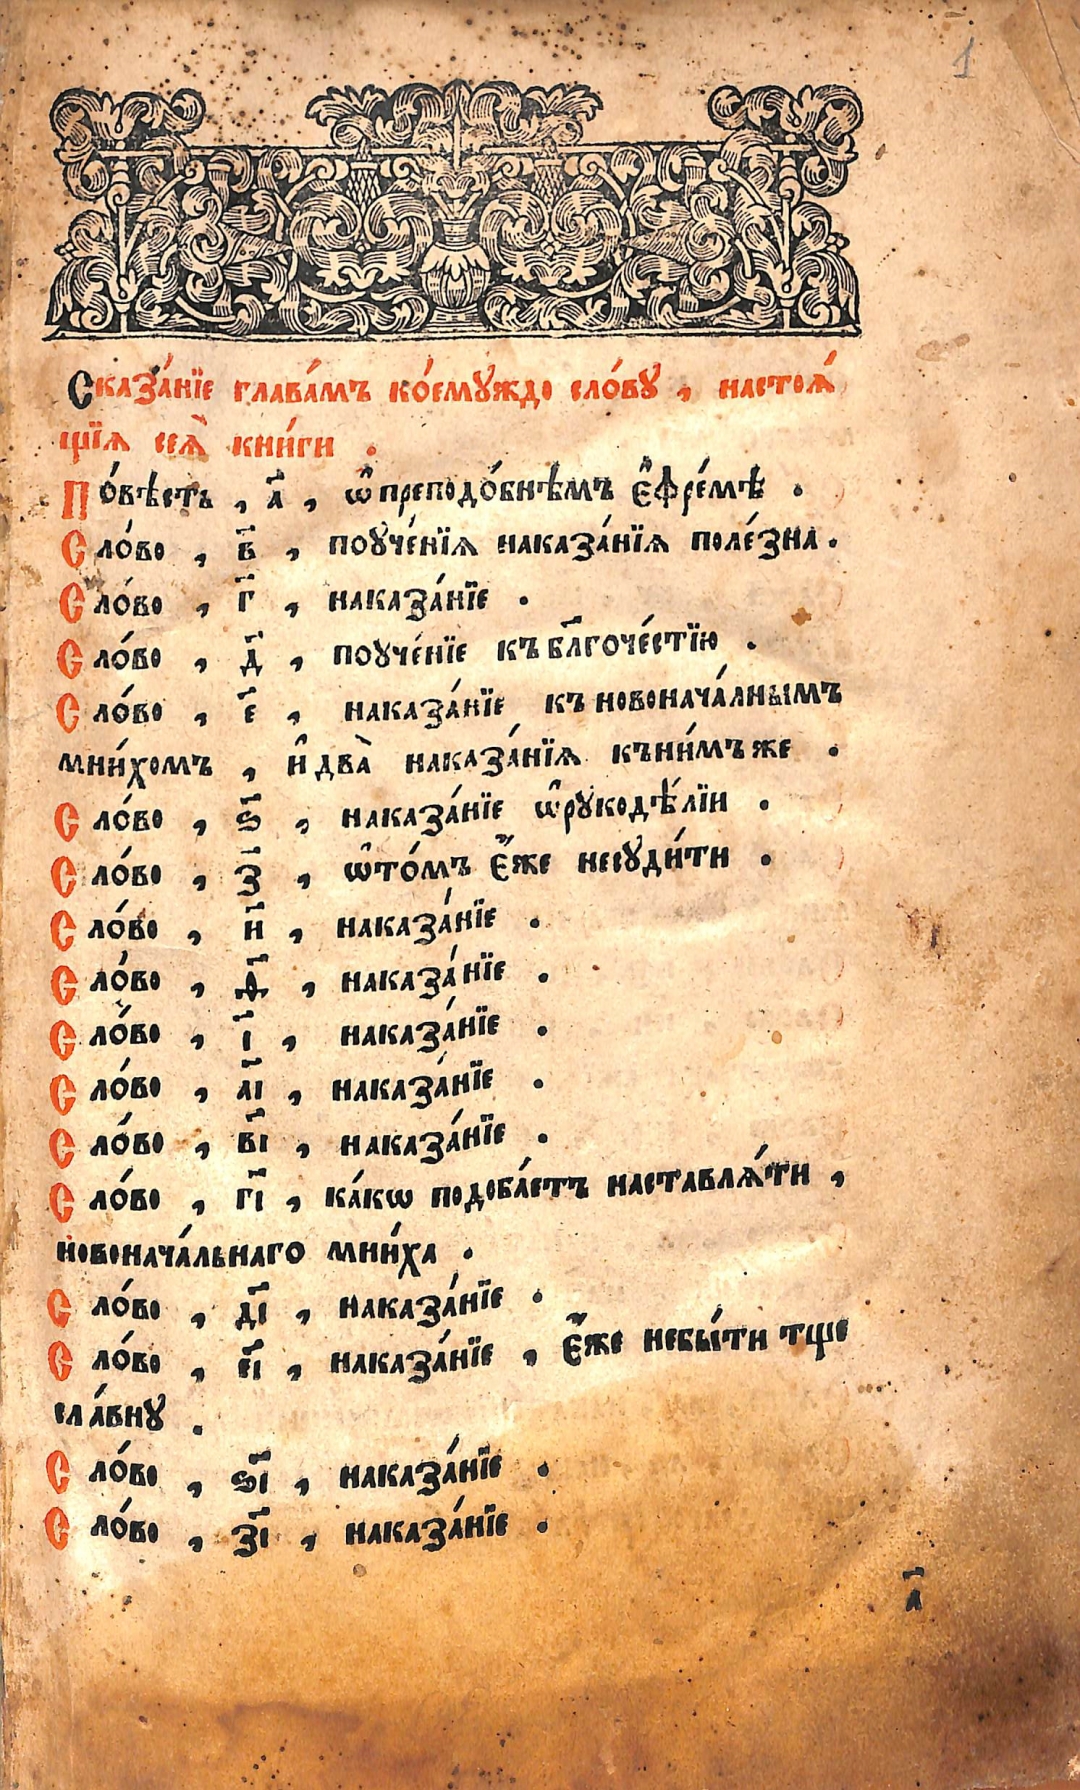 1
Сказа́нїе глава́мъ ко́емꙋждо сло́вꙋ , настоѧ́
щїѧ сеѧ̀ кни́ги .
По́вѣсть , а҃ , ѡ҆ преподо́бнѣмъ є҆фре́мѣ .
Сло́во , в҃ , поуче́нїѧ наказа́нїѧ поле́зна .
Сло́во , г҃ , наказа́нїе .
Сло́во , д҃ , поуче́нїе къ бл҃гоче́стїю .
Сло́во , є҃ , наказа́нїе къ новонача́лнымъ
мни́хомъ , и҆ два̀ наказа́нїѧ къ ни́мъ же .
Сло́во , ѕ҃ , наказа́нїе ѡ҆ рꙋкодѣ́лїи .
Сло́во , з҃ , ѡ҆ то́мъ є҆́же несꙋди́ти .
Сло́во , и҃ , наказа́нїе .
Сло́во , ѳ҃ , наказа́нїе .
Сло́во , і҃ , наказа́нїе .
Сло́во , а҃і , наказа́нїе .
Сло́во , в҃і , наказа́нїе .
Сло́во , г҃і , ка́кѡ подоба́етъ наставлѧ́ти ,
новонача́льнаго мни́ха .
Сло́во , д҃і , наказа́нїе .
Сло́во , є҃і , наказа́нїе , є҆́же небы́ти тще
сла́внꙋ .
Сло́во , ѕ҃і , наказа́нїе .
Сло́во , з҃і , наказа́нїе .
а҃